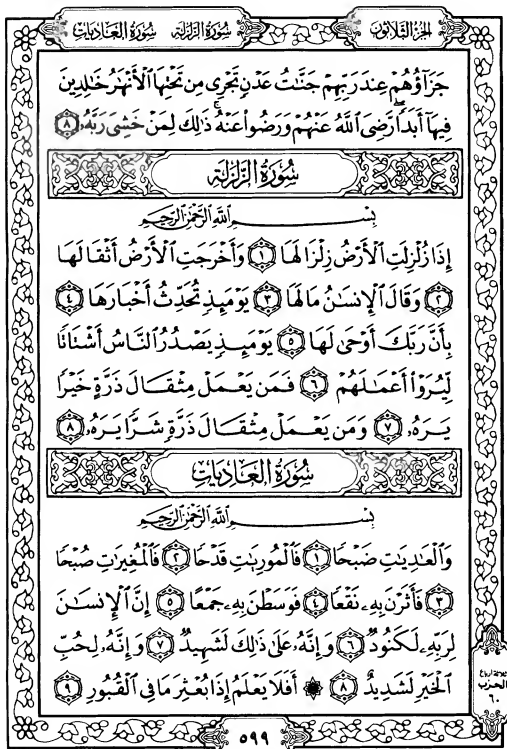 الجزء الثلاثون
سورة الزلزلة سورة العاديات
جَزَآؤُهُمْ عِندَ رَبِّهِمْ جَنَّٰتُ عَدْنٍ تَجْرِى مِن تَحْتِهَا ٱلْأَنْهَٰرُ خَٰلِدِينَ
فِيهَآ أَبَدًا ۖ رَّضِىَ ٱللَّهُ عَنْهُمْ وَرَضُوا۟ عَنْهُ ۚ ذَٰلِكَ لِمَنْ خَشِىَ رَبَّهُۥ ٨
سُورَةُ الزَّلْزَلَةِ
بِسْمِ ٱللَّهِ ٱلرَّحْمَٰنِ ٱلرَّحِيمِ
إِذَا زُلْزِلَتِ ٱلْأَرْضُ زِلْزَالَهَا ١ وَأَخْرَجَتِ ٱلْأَرْضُ أَثْقَالَهَا
٢ وَقَالَ ٱلْإِنسَٰنُ مَالَهَا ٣ يَوْمَئِذٍ تُحَدِّثُ أَخْبَارَهَا ٤
بِأَنَّ رَبَّكَ أَوْحَىٰ لَهَا ٥ يَوْمَئِذٍ يَصْدُرُ ٱلنَّاسُ أَشْتَاتًا
لِّيُرَوْا۟ أَعْمَٰلَهُمْ ٦ فَمَن يَعْمَلْ مِثْقَالَ ذَرَّةٍ خَيْرًا
يَرَهُۥ ٧ وَمَن يَعْمَلْ مِثْقَالَ ذَرَّةٍ شَرًّا يَرَهُۥ ٨
سُورَةُ العَادِيَاتِ
بِسْمِ ٱللَّهِ ٱلرَّحْمَٰنِ ٱلرَّحِيمِ
وَٱلْعَٰدِيَٰتِ ضَبْحًا ١ فَٱلْمُورِيَٰتِ قَدْحًا ٢ فَٱلْمُغِيرَٰتِ صُبْحًا
٣ فَأَثَرْنَ بِهِۦ نَقْعًا ٤ فَوَسَطْنَ بِهِۦ جَمْعًا ٥ إِنَّ ٱلْإِنسَٰنَ
لِرَبِّهِۦ لَكَنُودٌ ٦ وَإِنَّهُۥ عَلَىٰ ذَٰلِكَ لَشَهِيدٌ ٧ وَإِنَّهُۥ لِحُبِّ
ٱلْخَيْرِ لَشَدِيدٌ ٨ ۞ أَفَلَا يَعْلَمُ إِذَا بُعْثِرَ مَا فِى ٱلْقُبُورِ ٩
ثلاثة أرباع
الحزب
٦٠
٥٩٩